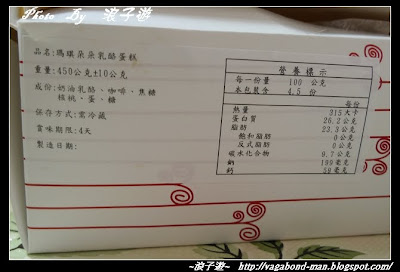 Photo By 浪子遊
品名:瑪琪朵朵乳酪蛋糕
重量:450公克±10公克
成份:奶油乳酪、咖啡、焦糖
核桃、蛋、糖
保存方式:需冷藏
賞味期限:4天
製造日期:
營養標示
每一份量 100 公克
本包裝含 4.5 份
每份
熱量 315大卡
蛋白質 26.2公克
脂肪 23.3公克
飽和脂肪 0公克
反式脂肪 0公克
碳水化合物 9.7公克
鈉 199毫克
鈣 59毫克
~浪子遊~ http://vagabond-man.blogspot.com/